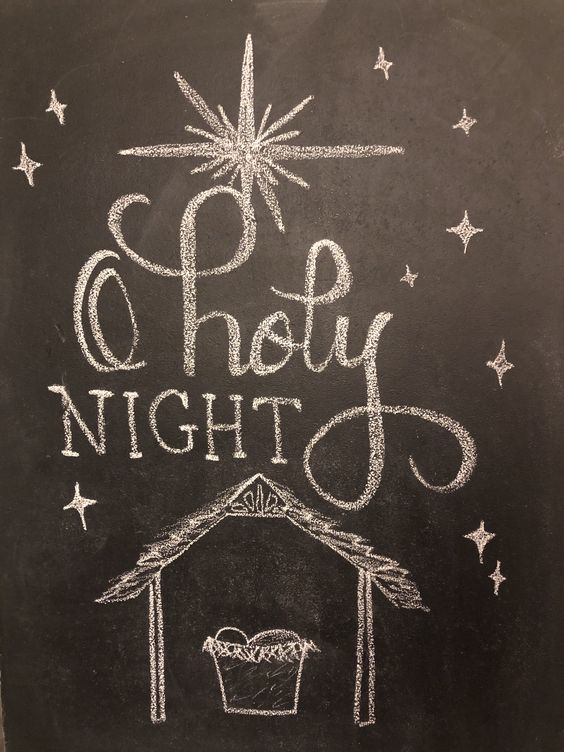 O holy
NIGHT